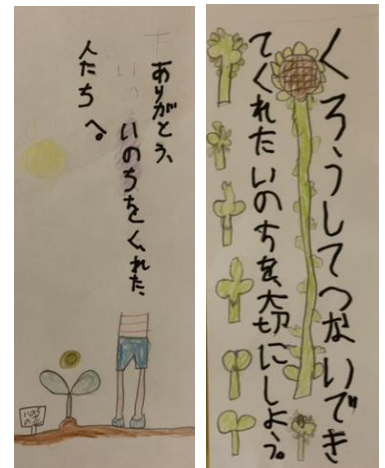 ありがとう、
いのちをくれた、
人たちへ。
いのち
くろうしてつないでき
てくれたいのちを、大切にしよう。